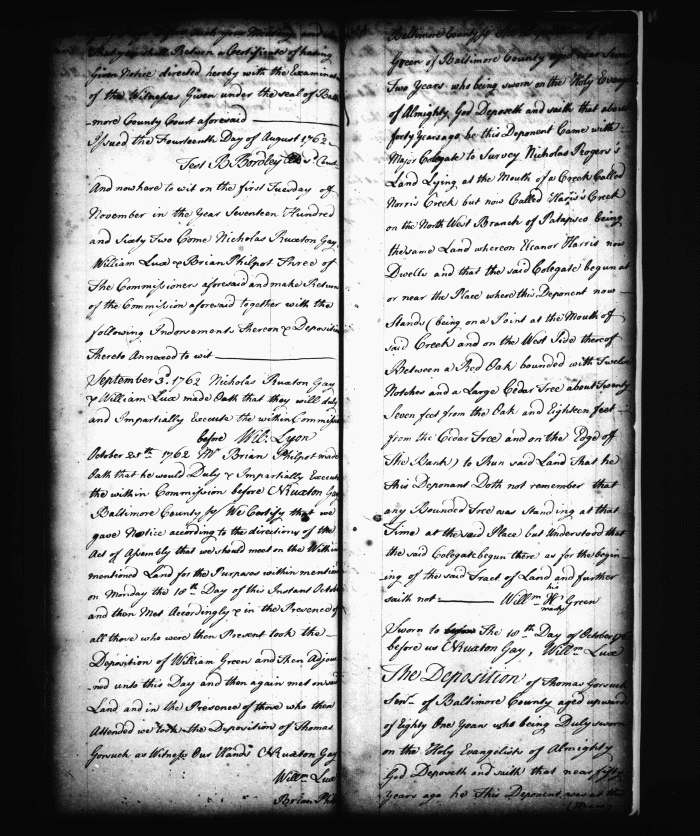 that you shall Return a Certificate of having
Given Notice directed hereby with the Examinat
of the Witnesses, Given under the seal of Balt
-more County Court aforesaid
Issued the Fourteenth Day of August 1762
Test B Bordley
And now here to wit on the first Tuesday of
November in the Year Seventeen Hundred
and Sixty Two Come Nicholas Ruxton Gay,
William Lux & Brian Philpot Three of
The Commissioners aforesaid and make Return
of the Commission aforesaid together with the
following Indorsements Thereon & Depositio
thereto Annexed to wit
September 3d. 1762 Nicholas Ruxton Gay
& William Lux made Oath that they will duly
and Impartially Execute the within Commissio
before Wil: Lyon
October 25th 1762 Mr Brian Philpot made
Oath that he would Duly & Impartially Execute
the within Commission before NRuxton Gay
Baltimore County We Certify that we
gave Notice according to the directions of the
Act of Assembly that we should meet on the Within
mentioned Land for the Purposes within mention
on Monday the 18th Day of this Instant Octob
and then Met Accordingly & in the Presence of
all those who were then Present took the
Deposition of William Green and Then Adjour
-ned unto this Day and then again met on said
Land and in the Presence of those who then
Attended we took the Deposition of Thomas
Gorsuch as Witness Our Hands NRuxton Gay
Willm Lux
Brian Phil
Baltimore County
Green of Baltimore County aged near Seventy
Two Years who being sworn on the Holy Evang
of Almighty God Deposeth and saith that about
forty Years ago he this Deponent Came with
Major Colegate to Survey Nicholas Rogers's
Land Lying at the Mouth of a Creek Called
Norris Creek but now Called Harris's Creek
on the North West Branch of Patapsco being
the same Land whereon Eleanor Harris now
Dwells and that the said Colegate begun at
or near the Place where this Deponent now
Stands (being on a Point at the Mouth of
said Creek and on the West Side thereof
Between a Red Oak bounded with Twelve
Notches and a Large Cedar Tree about Twenty
Seven feet from the Oak and Eighteen feet
from the Cedar Tree and on the Edge of
The Bank) to Run said Land That he
this Deponant Doth not remember that
any Bounded Tree was Standing at that
Time at the said Place but Understood that
the said Colegate begun there as for the begin
ing of the said Tract of Land and further
saith not Willm his W mark Green
Sworn to before The 18th Day of October
before us NRuxton Gay, Willm Lux
The Deposition of Thomas Gorsuch
Senr of Baltimore County aged upward
of Eighty One Years who being Duly sworn
on the Holy Evangelists of Almighty
God Deposeth and saith that near fifty
Years ago he This Deponent was at the